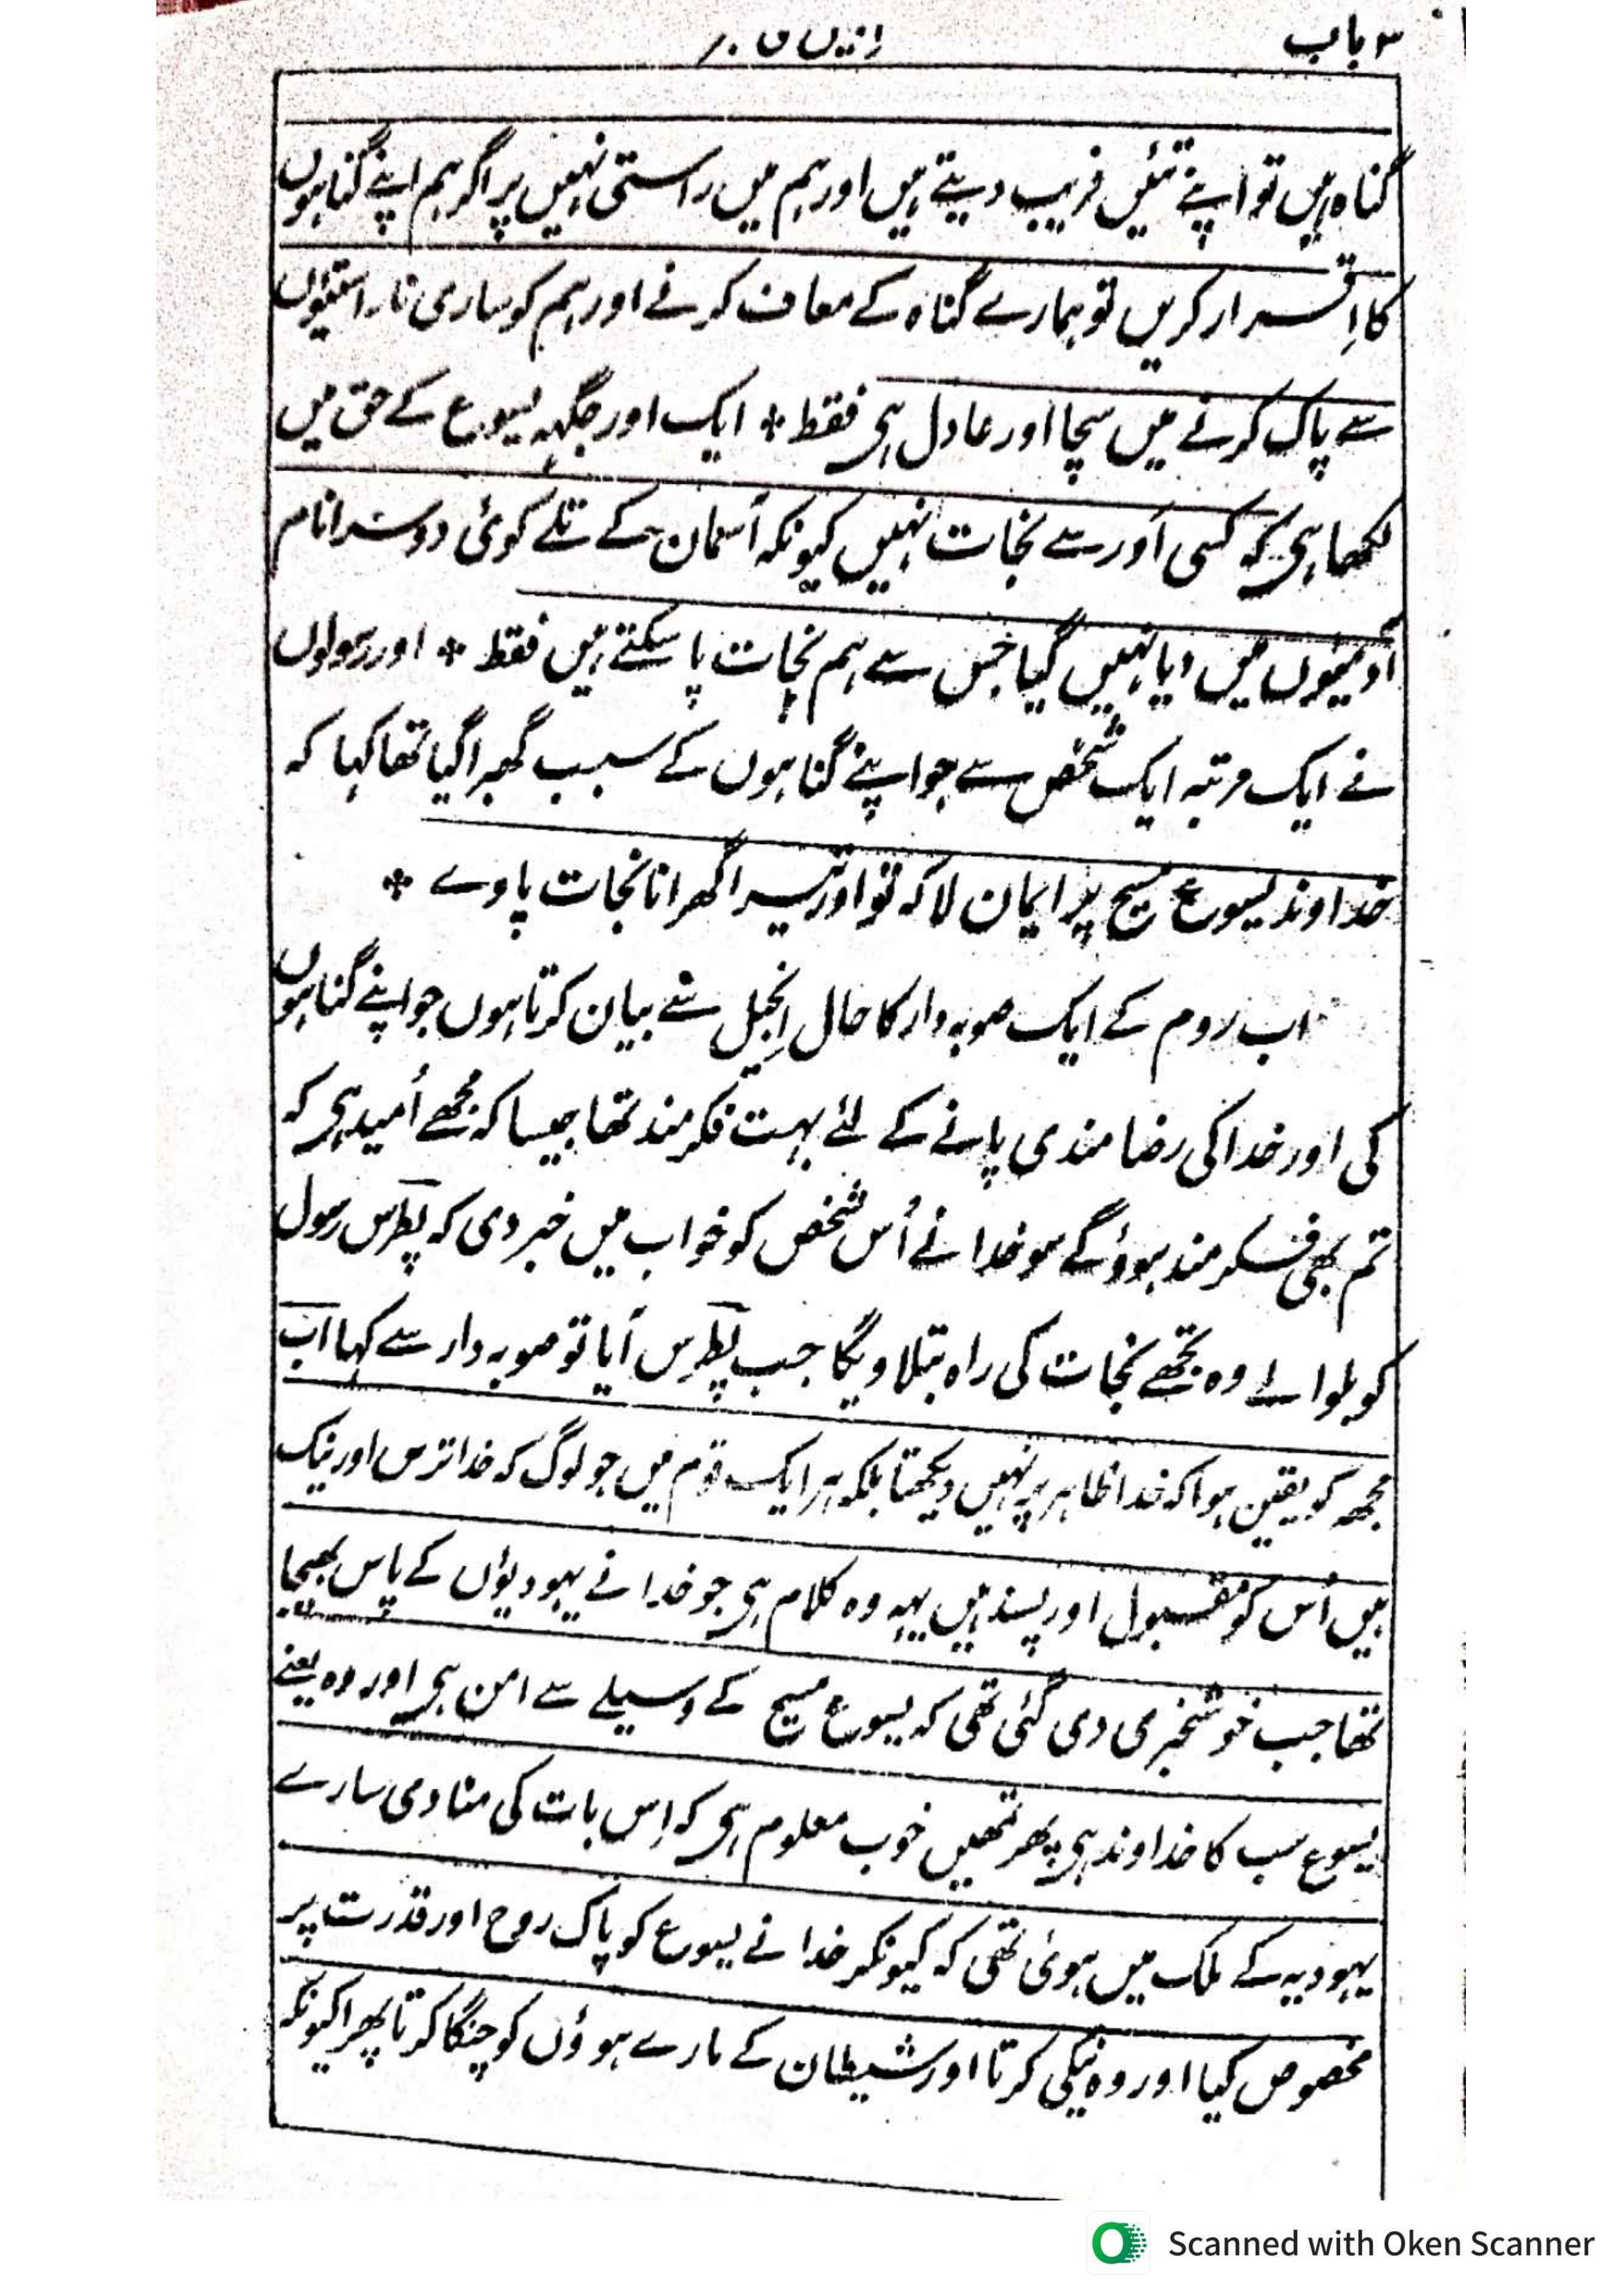 ۳ باب
گناہ ہیں تو اپنے تئیں فریب دیتے ہیں اور ہم میں راستی نہیں پر اگر ہم اپنے گناہوں
کا اِقرار کریں تو ہمارے گناہ کے معاف کرنے اور ہم کو ساری ناراستیوں
سے پاک کرنے میں سچا اور عادل ہی فقط * ایک اور جگہہ یسوع کے حق میں
لکھا ہی کہ کسی اَور سے نجات نہیں کیونکہ آسمان کے تلے کوئی دوسرا نام
آدمیوں میں دیا نہیں گیا جس سے ہم نجات پا سکتے ہیں فقط * اور رسولوں
نے ایک مرتبہ ایک شخص سے جو اپنے گناہوں کے سبب گھبرا گیا تھا کہا کہ
خداوند یسوع مسیح پر ایمان لا کہ تو اور تیرا گھرانا نجات پاوے *
اب روم کے ایک صوبہ دار کا حال اِنجیل سے بیان کرتا ہوں جو اپنے گناہوں
کی اور خدا کی رضامندی پانے کے لئے بہت فکرمند تھا جیسا کہ مجھے اُمید ہی کہ
تم بھی فکرمند ہوؤگے سو خدا نے اُس شخص کو خواب میں خبر دی کہ پطرس رسول
کو بلوا لے وہ تجھے نجات کی راہ بتلاویگا جب پطرس آیا تو صوبہ دار سے کہا اب
مجھہ کو یقین ہوا کہ خدا ظاہر پر نہیں دیکھتا بلکہ ہر ایک قوم میں جو لوگ کہ خدا ترس اور نیک
ہیں اُس کو مقبول اور پسند ہیں یہہ وہ کلام ہی جو خدا نے یہودیوں کے پاس بھیجا
تھا جب خوشخبری دی گئی تھی کہ یسوع مسیح کے وسیلے سے امن ہی اور وہ یعنے
یسوع سب کا خداوند ہی پھر تمھیں خوب معلوم ہی کہ اِس بات کی منادی سارے
یہودیہ کے ملک میں ہوئی تھی کہ کیونکر خدا نے یسوع کو پاک روح اور قدرت پر
مخصوص کیا اور وہ نیکی کرتا اور شیطان کے مارے ہوؤں کو چنگا کرتا پھرا کیونکہ
Scanned with Oken Scanner